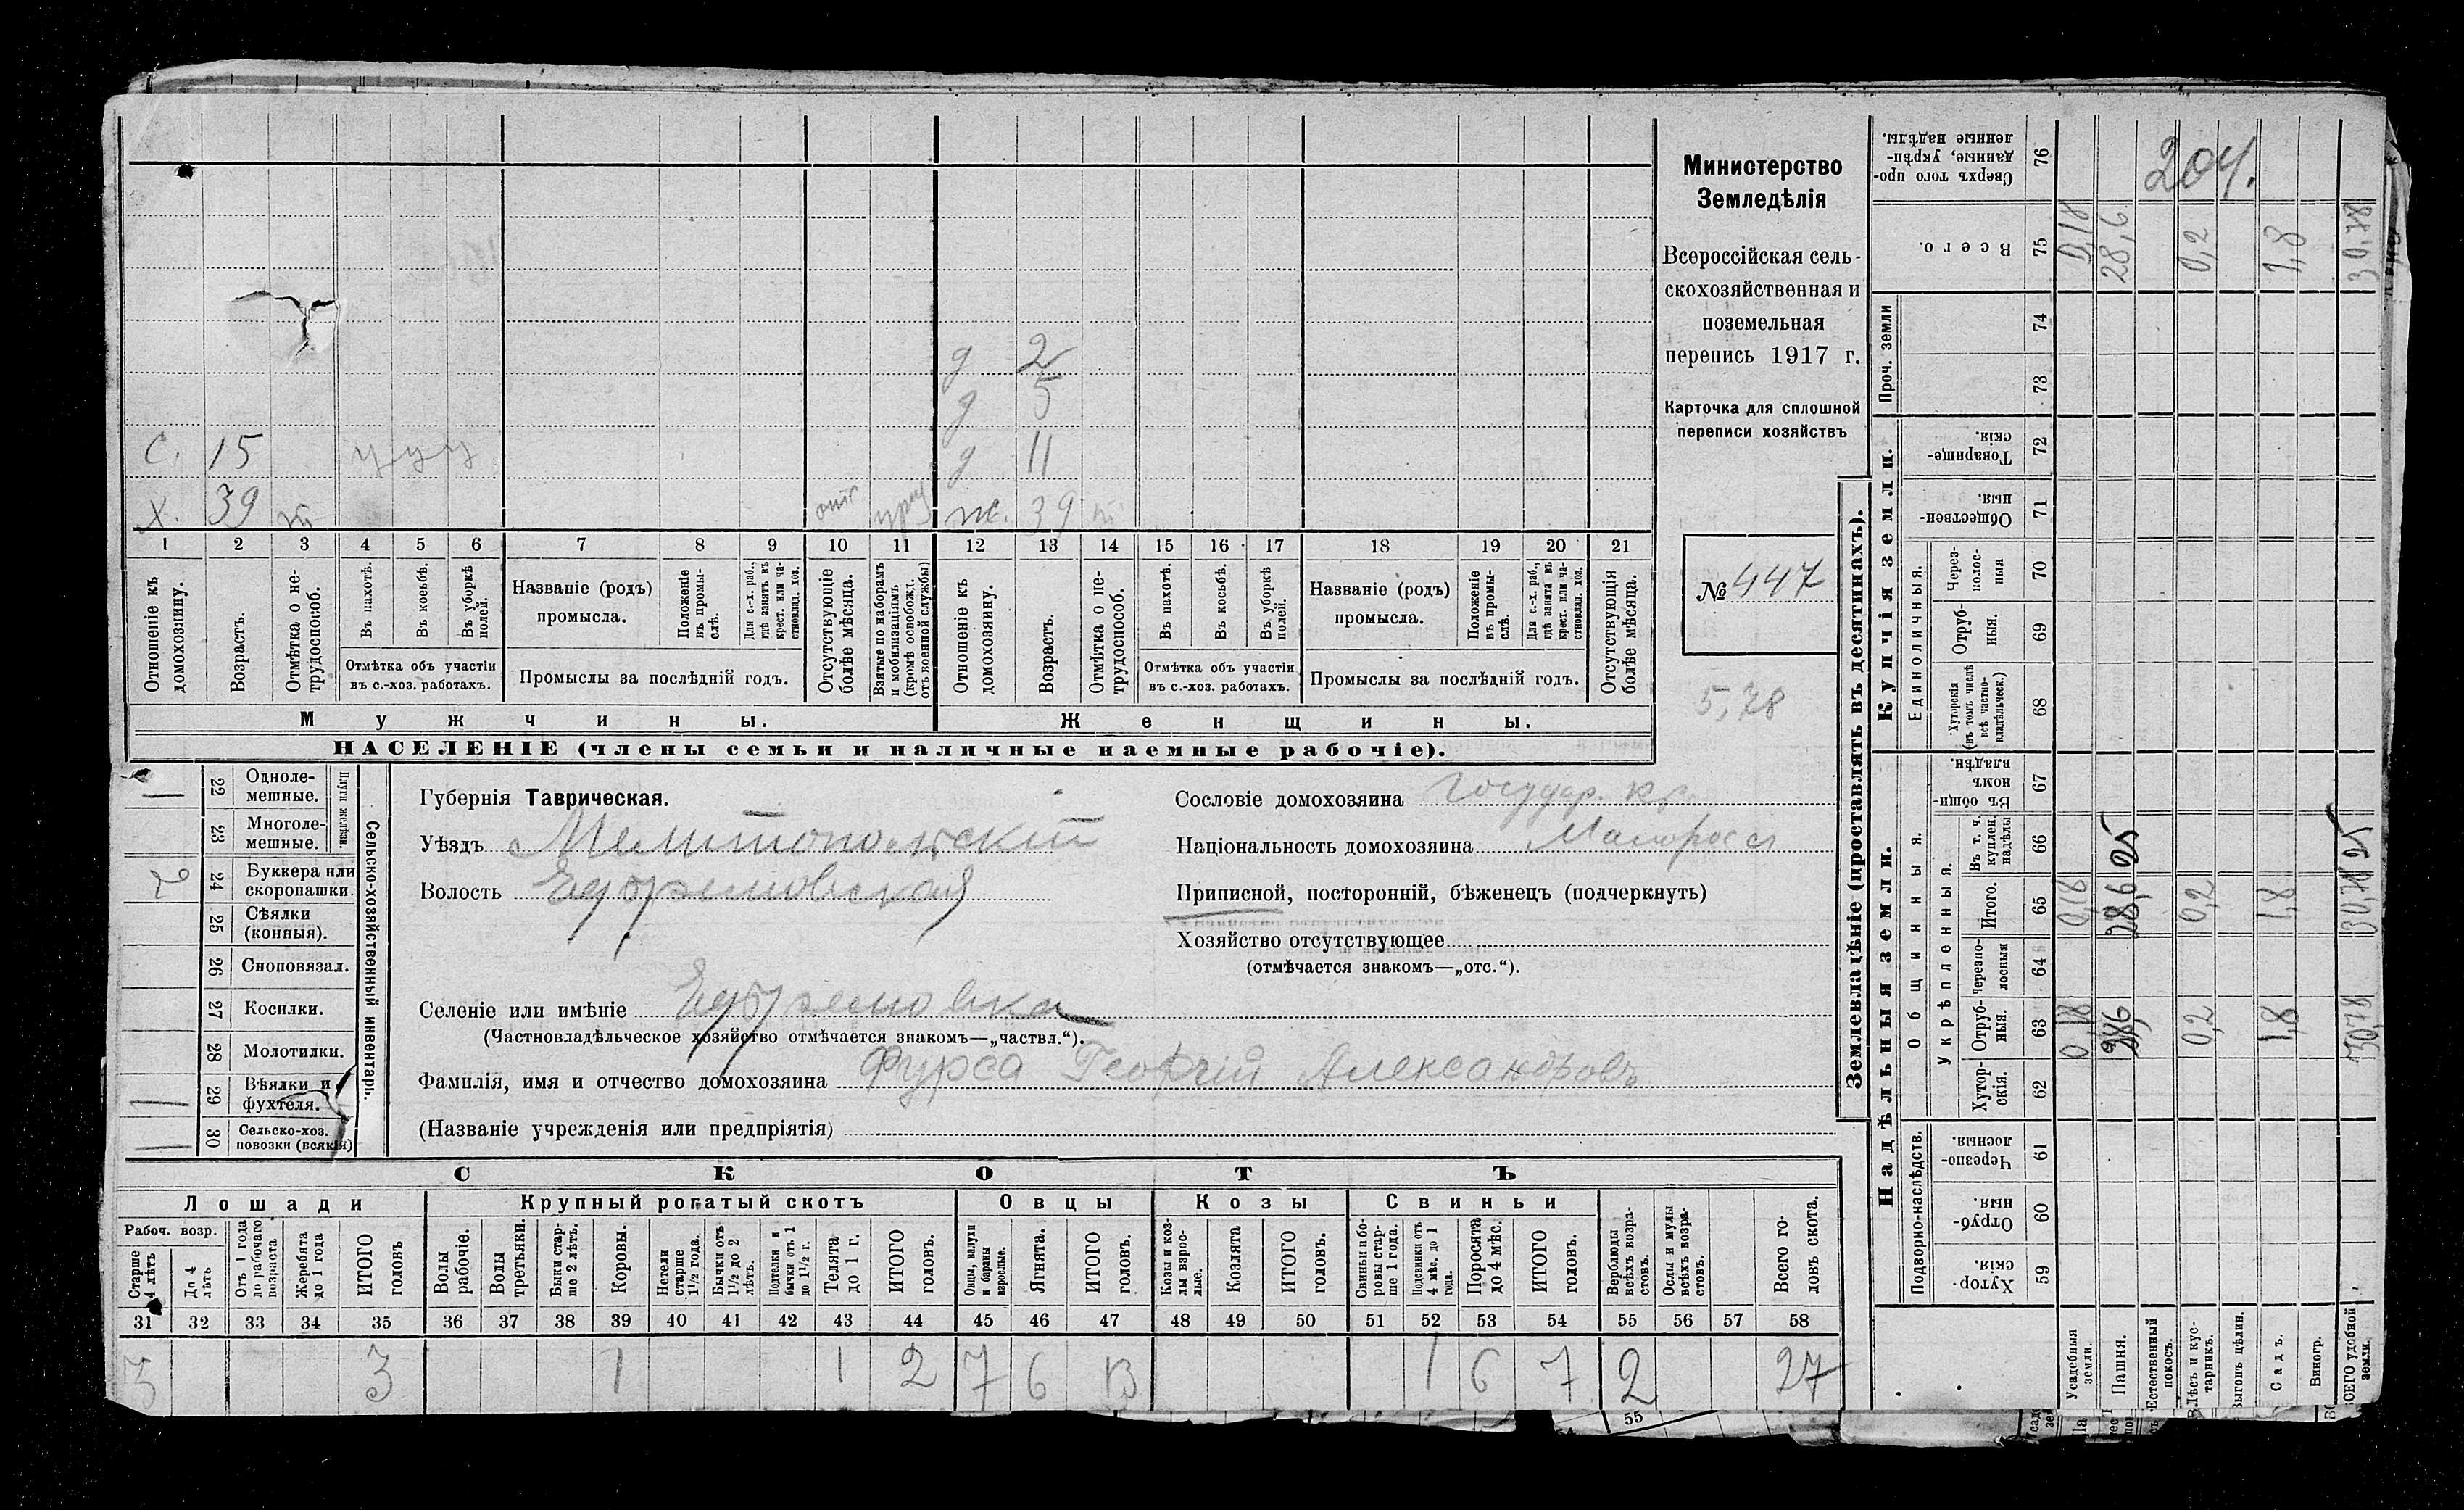 Министерство
Земледѣлія
Всероссійская сель-
скохозяйственная и
поземельная
перепись 1917 г.
Карточка для сплошной
переписи хозяйствъ
№ 447
5,78
д 2
д 5
С. 15 у у у д 11
Х. 39 отс ж. 39
1 2 3 4 5 6 7 8 9 10 11 12 13 14 15 16 17 18 19 20 21
Отношеніе къ домохозяину.
Возрастъ.
Отмѣтка о не-трудоспособ.
Въ пахотѣ.
Въ косьбѣ.
Въ уборкѣ полей.
Отмѣтка объ участіи
въ с.-хоз. работахъ.
Названіе (родъ)
промысла.
Положеніе въ промы-слѣ.
Для с.-х. раб., гдѣ занятъ въ крест. или ча-стновлад. хоз.
Промыслы за послѣдній годъ.
Отсутствующіе болѣе мѣсяца.
Взятые по наборамъ и мобилизаціямъ (кромѣ освобожд. отъ военной службы)
Отношеніе къ домохозяину.
Возрастъ.
Отмѣтка о не-трудоспособ.
Въ пахотѣ.
Въ косьбѣ.
Въ уборкѣ полей.
Отмѣтка объ участіи
въ с.-хоз. работахъ.
Названіе (родъ)
промысла.
Положеніе въ промы-слѣ.
Для с.-х. раб., гдѣ занята въ крест. или ча-стновлад. хоз.
Промыслы за послѣдній годъ.
Отсутствующія болѣе мѣсяца.
Мужчины.
Женщины.
НАСЕЛЕНІЕ (члены семьи и наличные наемные рабочіе).
Сельско-хозяйственный инвентарь.
Плуги желѣзн.
1 22 Одноле-мешные.
23 Многоле-мешные.
2 24 Буккера или скоропашки.
25 Сѣялки (конныя).
26 Сноповязал.
27 Косилки.
28 Молотилки.
1 29 Вѣялки и фухтеля.
1 30 Сельско-хоз. повозки (всякія)
Губернія Таврическая.
Уѣздъ Мелитопольскій
Волость Ефремовская
Селеніе или имѣніе Ефремовка
(Частновладѣльческое хозяйство отмѣчается знакомъ—„частвл.“).
Фамилія, имя и отчество домохозяина Фурса Георгій Александровъ
(Названіе учрежденія или предпріятія)
Сословіе домохозяина Государ. кр.
Національность домохозяина Малоросс
Приписной, посторонній, бѣженецъ (подчеркнуть)
Хозяйство отсутствующее
(отмѣчается знакомъ—„отс.“).
СКОТЪ
Лошади
Крупный рогатый скотъ
Овцы
Козы
Свиньи
Рабоч. возр.
Старше 4 лѣтъ
До 4 лѣтъ
Отъ 1 года до рабочаго возраста
Жеребята до 1 года
ИТОГО головъ
Волы рабочіе.
Волы третьяки.
Быки стар-ше 2 лѣтъ.
Коровы.
Нетели старше 1½ года.
Бычки отъ 1½ до 2 лѣтъ.
Подтелки и бычки отъ 1 до 1½ г.
Телята до 1 г.
ИТОГО головъ.
Овцы, валухи и бараны взрослые.
Ягнята.
ИТОГО головъ.
Козы и коз-лы взрос-лые.
Козлята
ИТОГО головъ.
Свиньи и бо-ровы стар-ше 1 года.
Подсвинки отъ 4 мѣс. до 1 года.
Поросята до 4 мѣс.
ИТОГО головъ.
Верблюды всѣхъ возра-стовъ.
Ослы и мулы всѣхъ возра-стовъ.
Всего го-ловъ скота.
31 32 33 34 35 36 37 38 39 40 41 42 43 44 45 46 47 48 49 50 51 52 53 54 55 56 57 58
3 3 1 1 2 7 6 13 1 6 7 2 27
Землевладѣніе (проставлять въ десятинахъ).
Надѣльныя земли.
Купчія земли.
Проч. земли
Подворно-наслѣдств.
Общинныя.
Укрѣпленныя.
Единоличныя.
59 Хутор-скія.
60 Отруб-ныя.
61 Черезпо-лосныя.
62 Хутор-скія.
63 Отруб-ныя.
64 Черезпо-лосныя
65 Итого.
66 Въ т. ч. куплен. надѣлы
67 Въ общи-номъ владѣн.
68 Хуторскія (въ томъ числѣ всѣ частно-владѣльческ.)
69 Отруб-ныя.
70 Через-полос-ныя
71 Обществен-ныя.
72 Товарище-скія.
73
74
75 Всего.
76 Сверхъ того про-данные, укрѣп-ленные надѣлы.
204.
Усадебныя земли. 0,18 0,18 0,18
Пашня. 28,6 28,6 25 28,6
Естественный покосъ.
Лѣсъ и кус-тарникъ. 0,2 0,2 0,2
Выгонъ цѣлин.
Садъ. 1,8 1,8 1,8
Виногр.
ВСЕГО удобной земли. 30,78 30,78 25 30,78
55